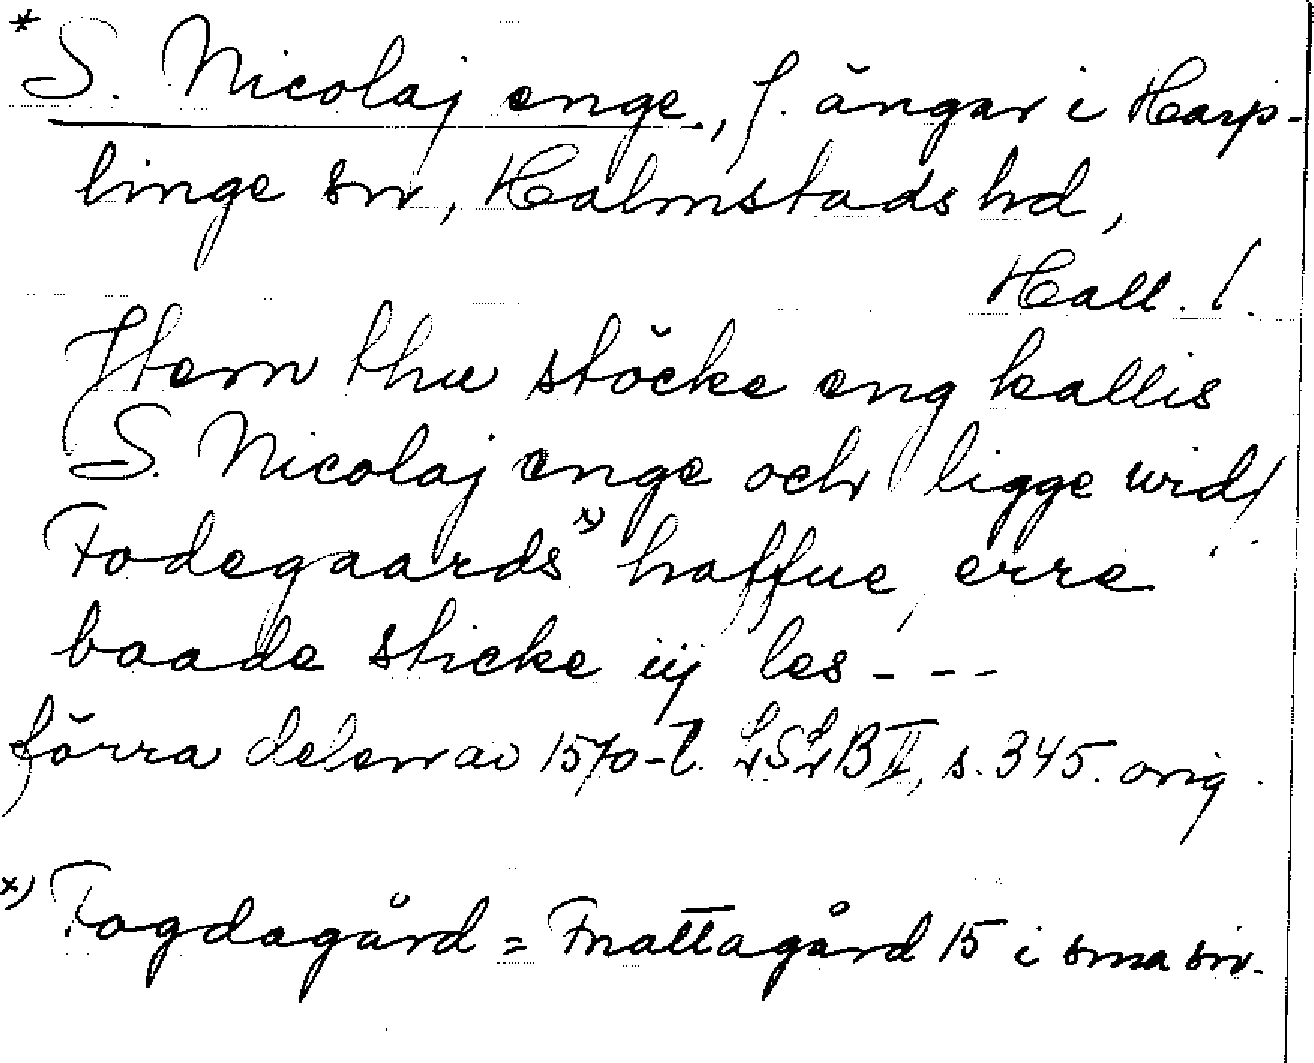 * S. Nicolaj enge, f. ängar i Harp-
linge sn, Halmstads hd,
Hall. l.
Item thu stöcke eng kallis
S. Nicolaj enge och ligge wid
Fodegaards x) haffue, erre
baade sticke iij les - - -
förra delen av 1570-t. LSLB II, s. 345. orig.
x) Fogdagård = Frattagård 15 i sma sn.